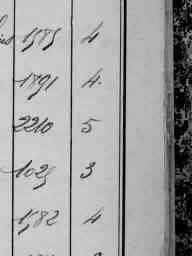 1585 4
1891 4.
2210 5
1025 3
1582 4